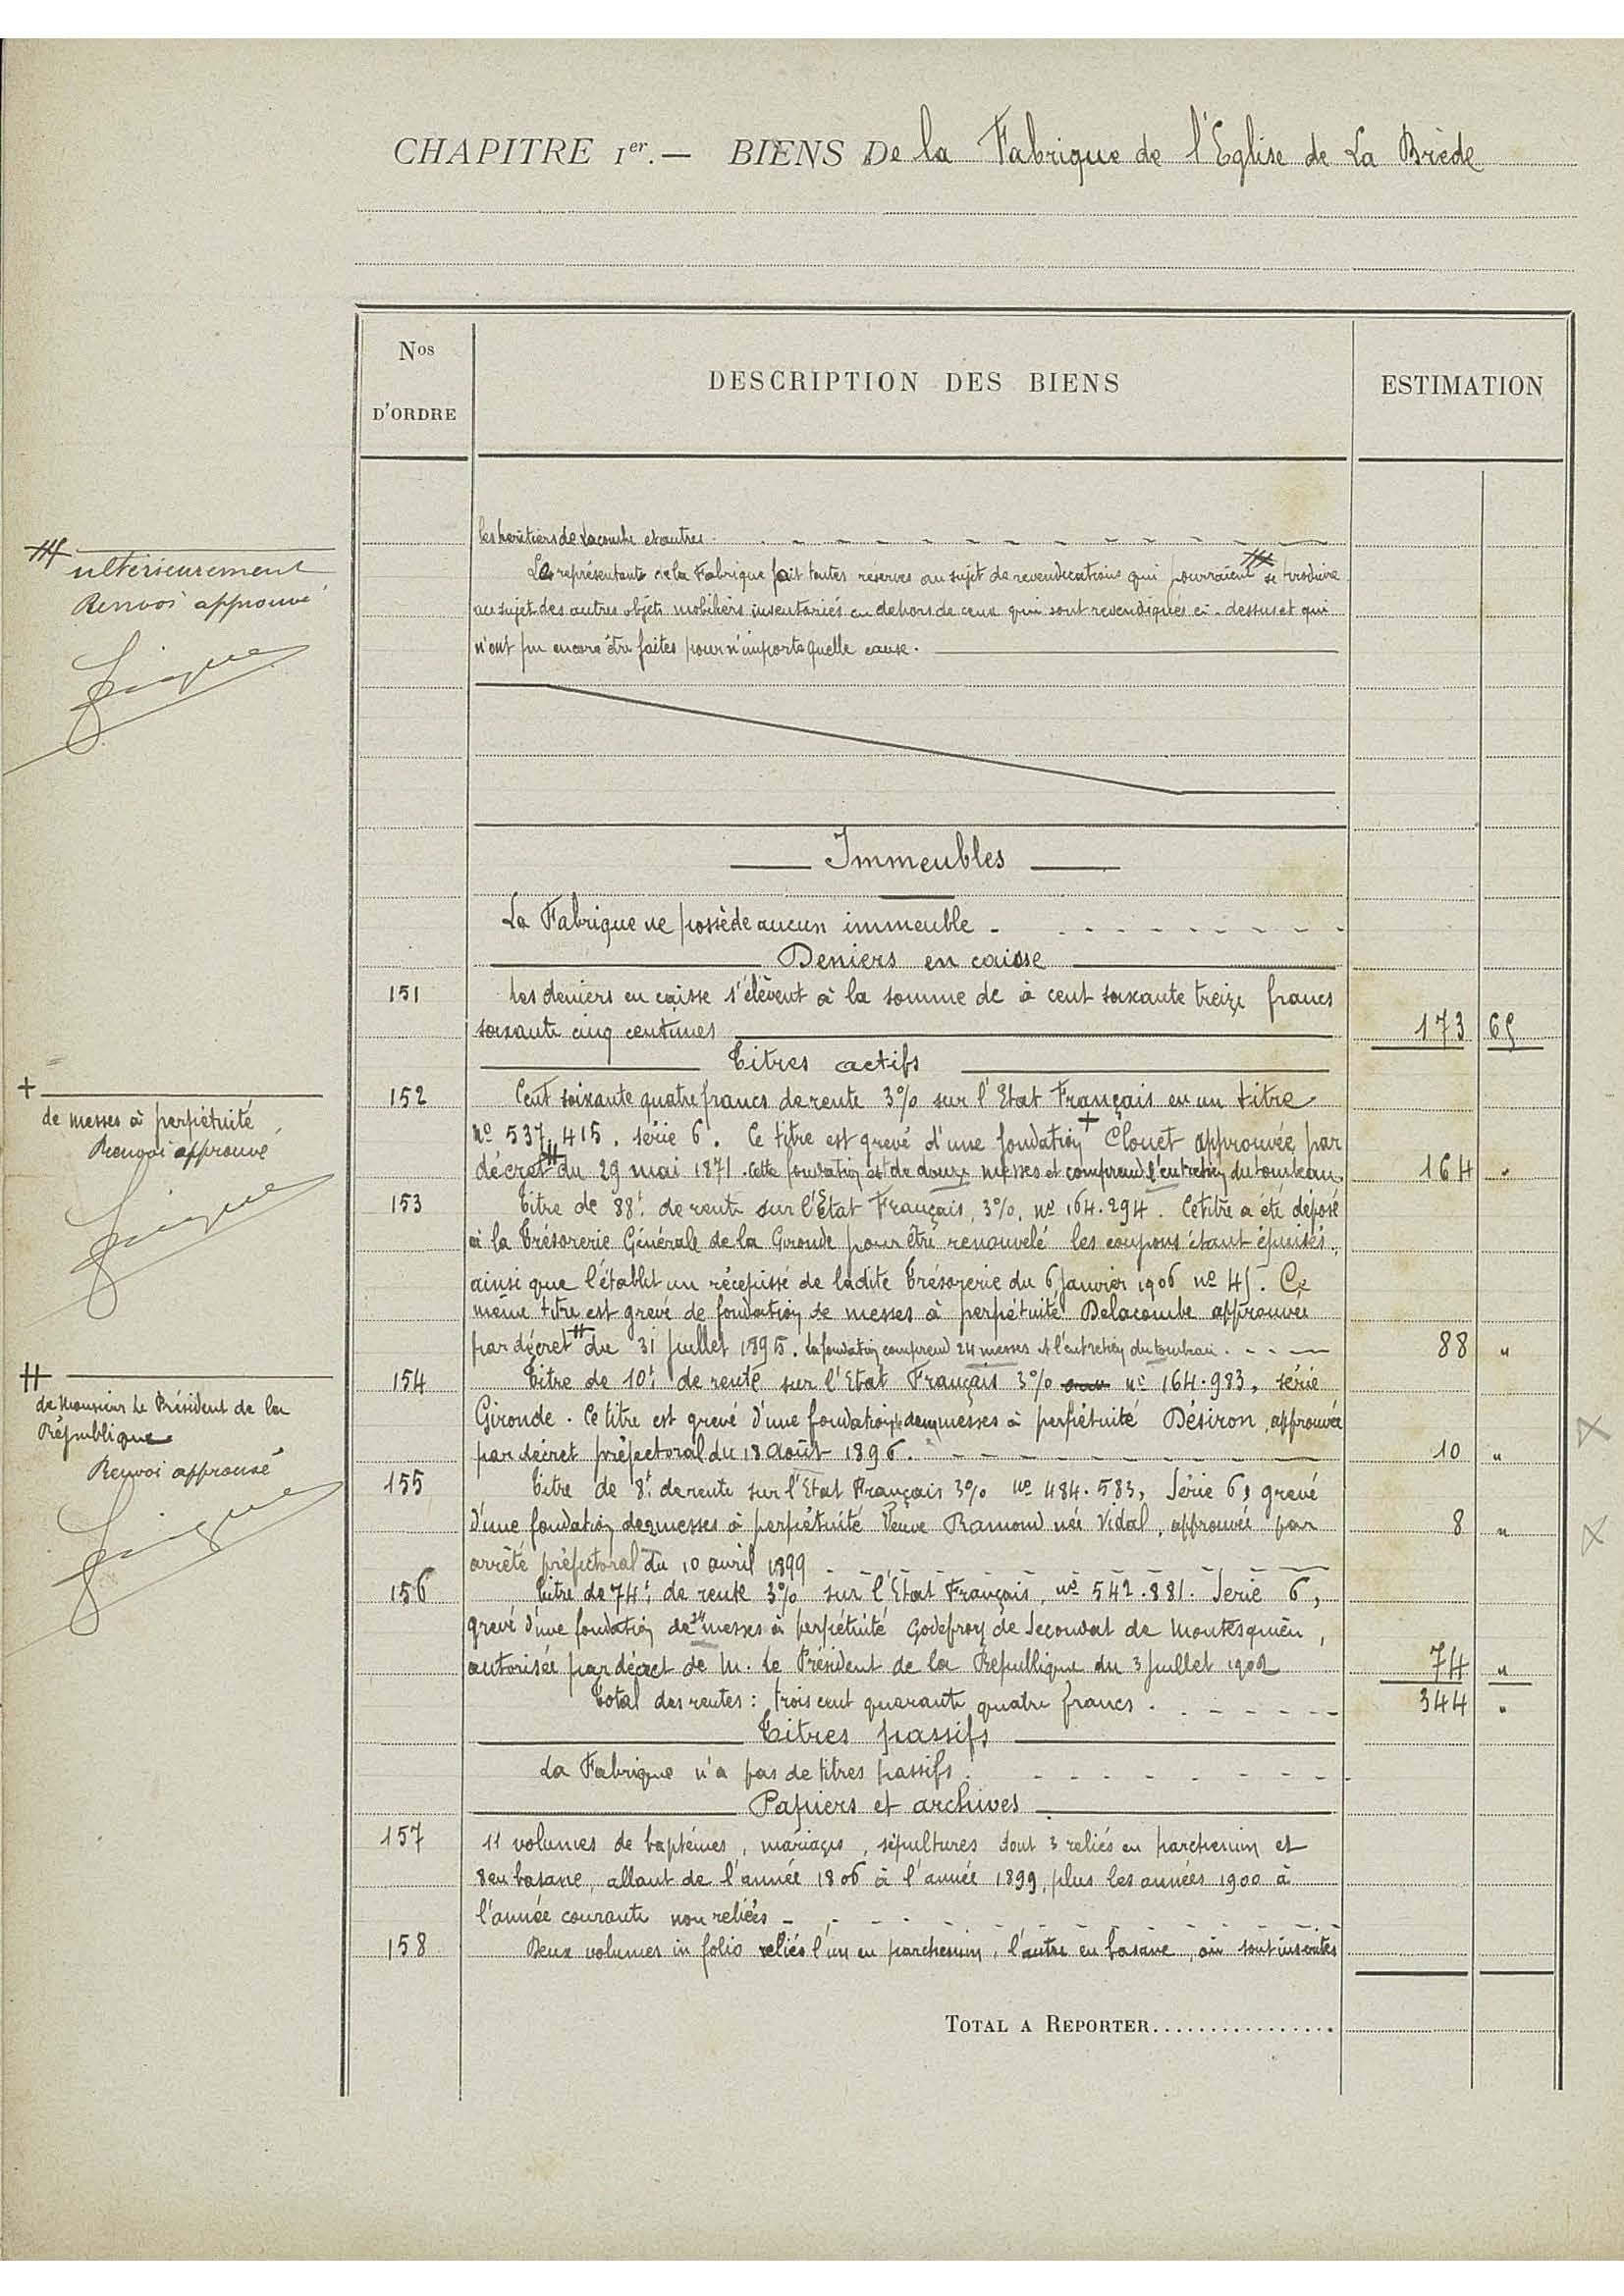 CHAPITRE Ier. — BIENS De la Fabrique de l'Eglise de La Brède
Nos D'ORDRE
DESCRIPTION DES BIENS
ESTIMATION
les héritiers de Lacombe et autres
Le représentant de la Fabrique fait toutes réserves au sujet de revendications qui pourraient # se produire
au sujet des autres objets mobiliers inventoriés en dehors de ceux qui sont revendiqués ci-dessus et qui
n'ont pu encore être faites pour n'importe quelle cause.
# ultérieurement
Renvoi approuvé
Immeubles
La Fabrique ne possède aucun immeuble
Deniers en caisse
151 Les deniers en caisse s'élèvent à la somme de à cent soixante treize francs
soixante cinq centimes 173 65
Titres actifs
152 Cent soixante quatre francs de rente 3% sur l'Etat Français en un titre
No 537.415. série 6. Ce titre est grevé d'une fondation + Clouet approuvée par
décret # du 29 mai 1871. Cette fondation est de douze messes et comprend l'entretien du tombeau 164 "
+ de messes à perpétuité
Renvoi approuvé
153 Titre de 88f. de rente sur l'Etat Français, 3%, no 164.294. Ce titre a été déposé
à la Trésorerie Générale de la Gironde pour être renouvelé les coupons étant épuisés,
ainsi que l'établit un récepissé de ladite Trésorerie du 6 Janvier 1906 no 45. Ce
même titre est grevé de fondation de messes à perpétuité Delacombe approuvée
par décret # du 31 Juillet 1895. La fondation comprend 24 messes et l'entretien du tombeau 88 "
# de Monsieur Le Président de la
République
Renvoi approuvé
154 Titre de 10f. de rente sur l'Etat Français 3% no 164.983, série
Gironde. Ce titre est grevé d'une fondation de deux messes à perpétuité Désiron, approuvée
par décret préfectoral du 18 Août 1896. 10 "
155 Titre de 8f. de rente sur l'Etat Français 3% no 484.583, Série 6, grevé
d'une fondation de 2 messes à perpétuité Veuve Ramond née Vidal, approuvée par 8 "
arrêté préfectoral du 10 avril 1899
156 Titre de 74f. de rente 3% sur l'Etat Français, no 542.881. Serie 6,
grevé d'une fondation de 24 messes à perpétuité Godefroy de Secondat de Montesquieu,
autorisée par décret de M. Le Président de la République du 3 Juillet 1902 74 "
Total des rentes: trois cent quarante quatre francs. 344 "
Titres passifs
La Fabrique n'a pas de titres passifs.
Papiers et archives
157 11 volumes de baptêmes, mariages, sépultures dont 3 reliés en parchemin et
8 en basane, allant de l'année 1806 à l'année 1899, plus les années 1900 à
l'année courante non reliées
158 Deux volumes in folio reliés l'un en parchemin, l'autre en basane, où sont inscrites
TOTAL A REPORTER................